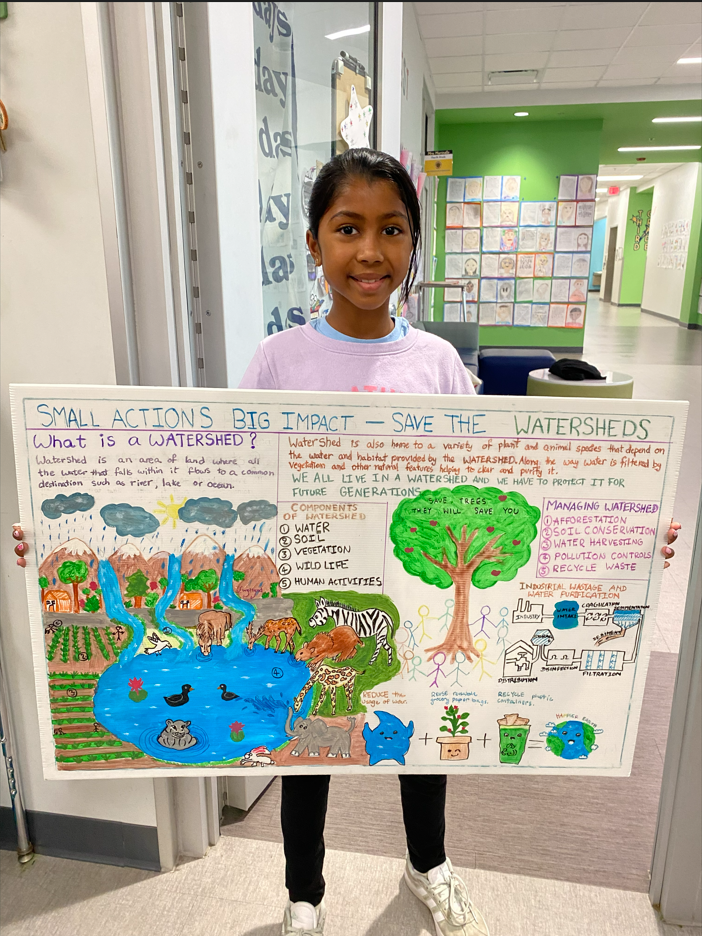 SMALL ACTIONS BIG IMPACT — SAVE THE WATERSHEDS
What is a WATERSHED?
Watershed is an area of land where all
the water that falls within it flows to a common
destination such as river, lake or ocean.
Watershed is also home to a variety of plant and animal species that depend on
the water and habitat provided by the WATERSHED. Along the way water is filtered by
vegetation and other natural features helping to clear and purify it.
WE ALL LIVE IN A WATERSHED AND WE HAVE TO PROTECT IT FOR
FUTURE GENERATIONS
COMPONENTS
OF WATERSHED
① WATER
② SOIL
③ VEGETATION
④ WILD LIFE
⑤ HUMAN ACTIVITIES
SAVE TREES
THEY WILL SAVE YOU
MANAGING WATERSHED
① AFFORESTATION
② SOIL CONSERVATION
③ WATER HARVESTING
④ POLLUTION CONTROLS
⑤ RECYCLE WASTE
INDUSTRIAL WASTAGE AND
WATER PURIFICATION
INDUSTRY
WATER
COAGULATION
SEDIMENTATION
DISTRIBUTION
DISINFECTION
FILTRATION
④
REDUCE the
usage of water
REUSE
grocery paper bags.
RECYCLE plastic
containers.
+
+
=
day
day
days